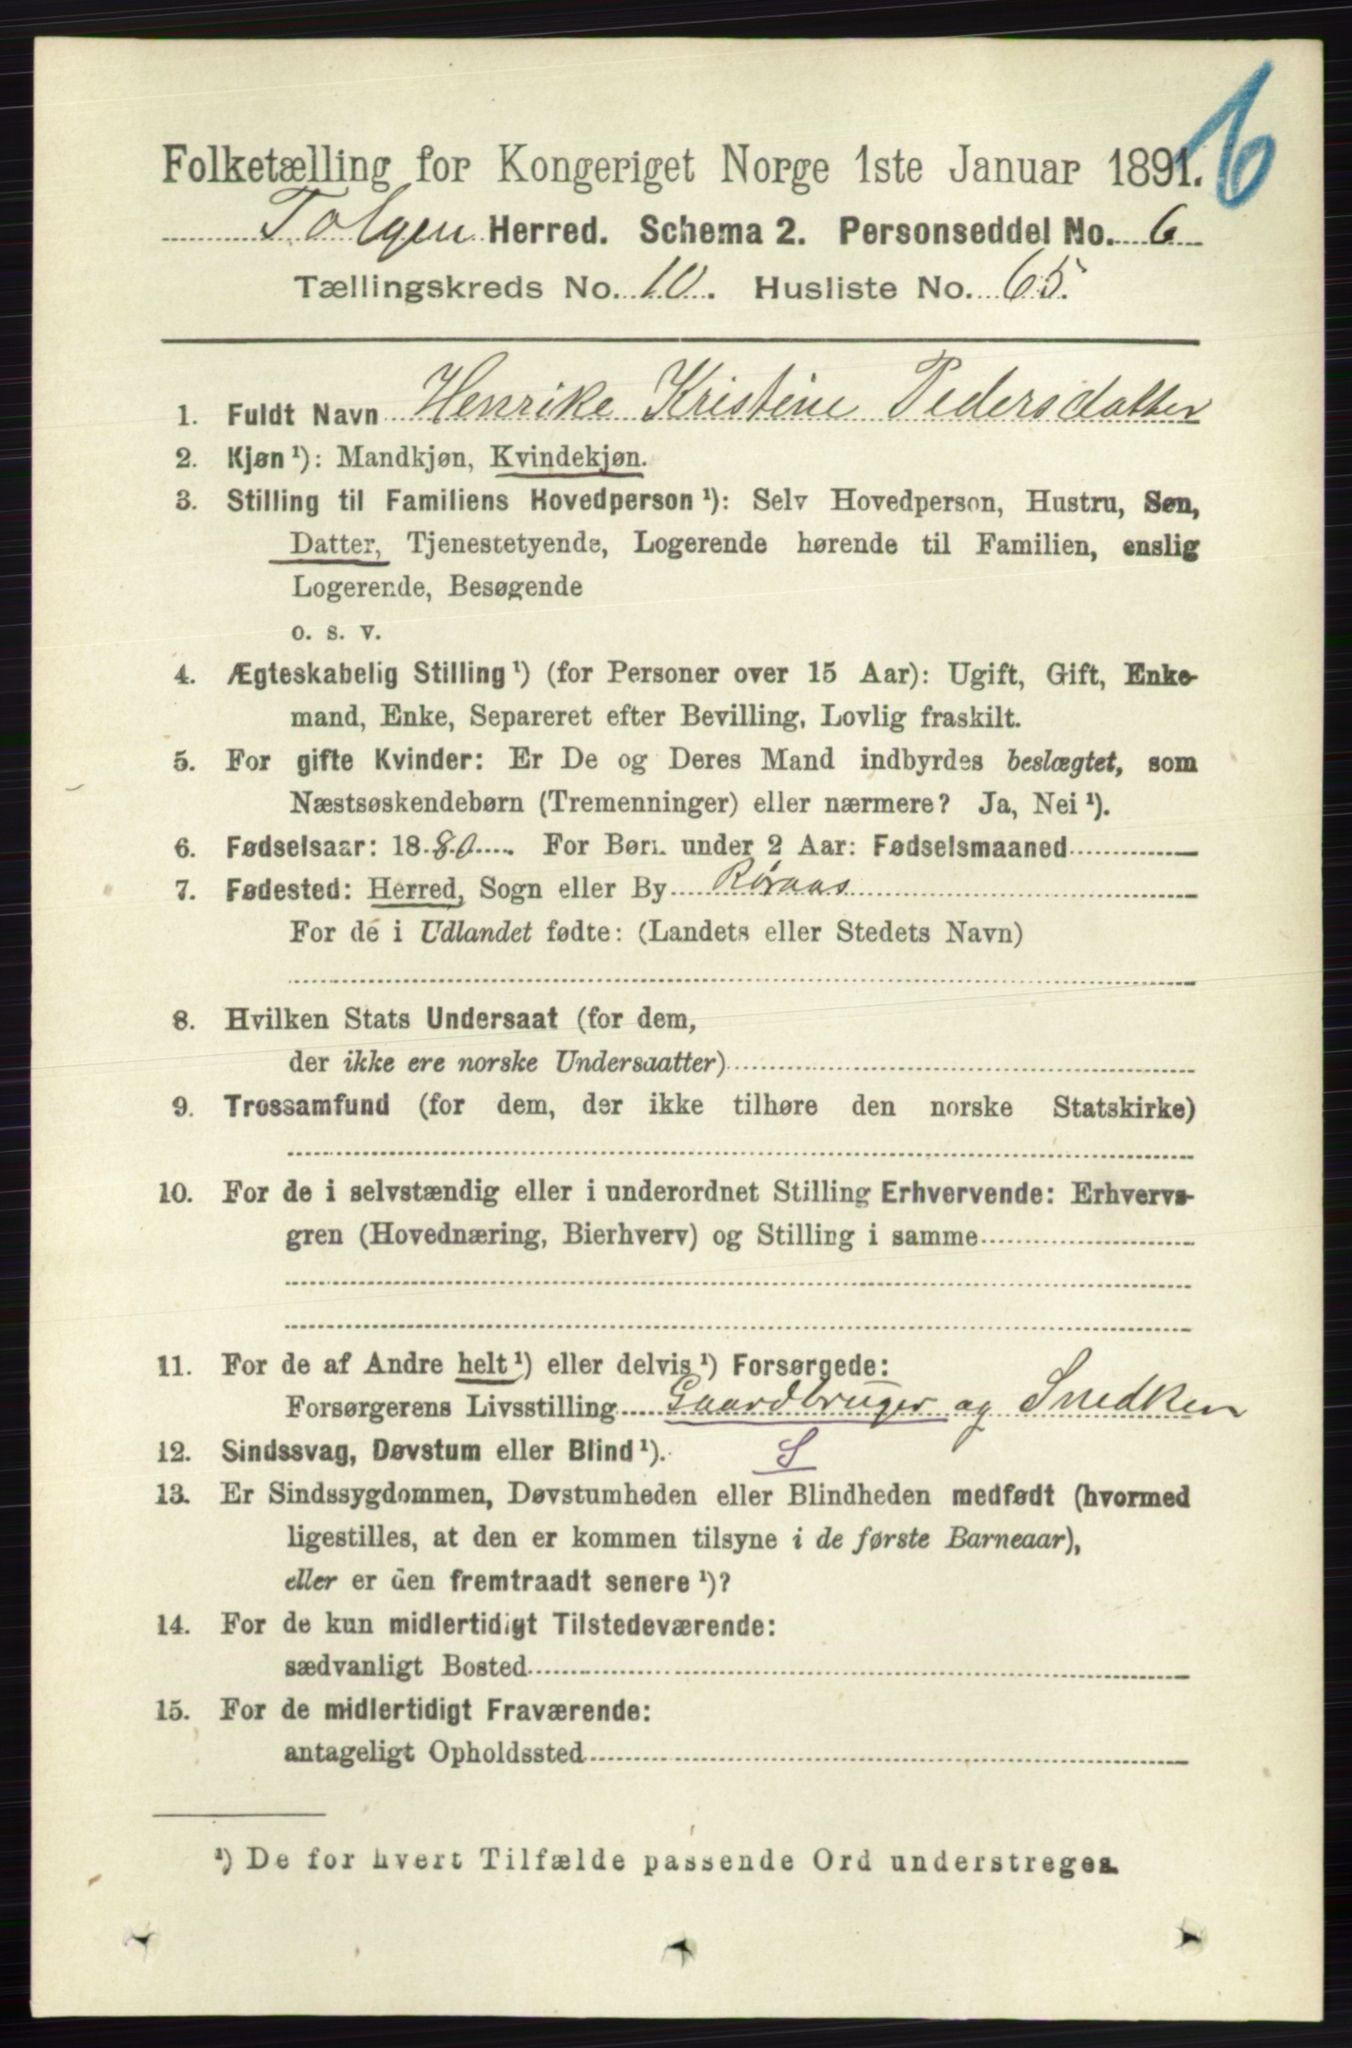 6
Folketælling for Kongeriget Norge 1ste Januar 1891.
Tolgen Herred. Schema 2. Personseddel No. 6
Tællingskreds No. 10. Husliste No. 65.
1. Fuldt Navn Henrike Kristine Pedersdatter
2. Kjøn ¹): Mandkjøn, Kvindekjøn.
3. Stilling til Familiens Hovedperson ¹): Selv Hovedperson, Hustru, Søn,
Datter, Tjenestetyende, Logerende hørende til Familien, enslig
Logerende, Besøgende
o. s. v.
4. Ægteskabelig Stilling ¹) (for Personer over 15 Aar): Ugift, Gift, Enke-
mand, Enke, Separeret efter Bevilling, Lovlig fraskilt.
5. For gifte Kvinder: Er De og Deres Mand indbyrdes beslægtet, som
Næstsøskendebørn (Tremenninger) eller nærmere? Ja, Nei ¹).
6. Fødselsaar: 1880. For Børn under 2 Aar: Fødselsmaaned
7. Fødested: Herred, Sogn eller By Røraas
For de i Udlandet fødte: (Landets eller Stedets Navn)
8. Hvilken Stats Undersaat (for dem,
der ikke ere norske Undersaatter)
9. Trossamfund (for dem, der ikke tilhøre den norske Statskirke)
10. For de i selvstændig eller i underordnet Stilling Erhvervende: Erhvervs-
gren (Hovednæring, Bierhverv) og Stilling i samme
11. For de af Andre helt ¹) eller delvis ¹) Forsørgede:
Forsørgerens Livsstilling Gaardbruger og Snedker
12. Sindssvag, Døvstum eller Blind ¹). S
13. Er Sindssygdommen, Døvstumheden eller Blindheden medfødt (hvormed
ligestilles, at den er kommen tilsyne i de første Barneaar),
eller er den fremtraadt senere ¹)?
14. For de kun midlertidigt Tilstedeværende:
sædvanligt Bosted
15. For de midlertidigt Fraværende:
antageligt Opholdssted
¹) De for hvert Tilfælde passende Ord understreges.